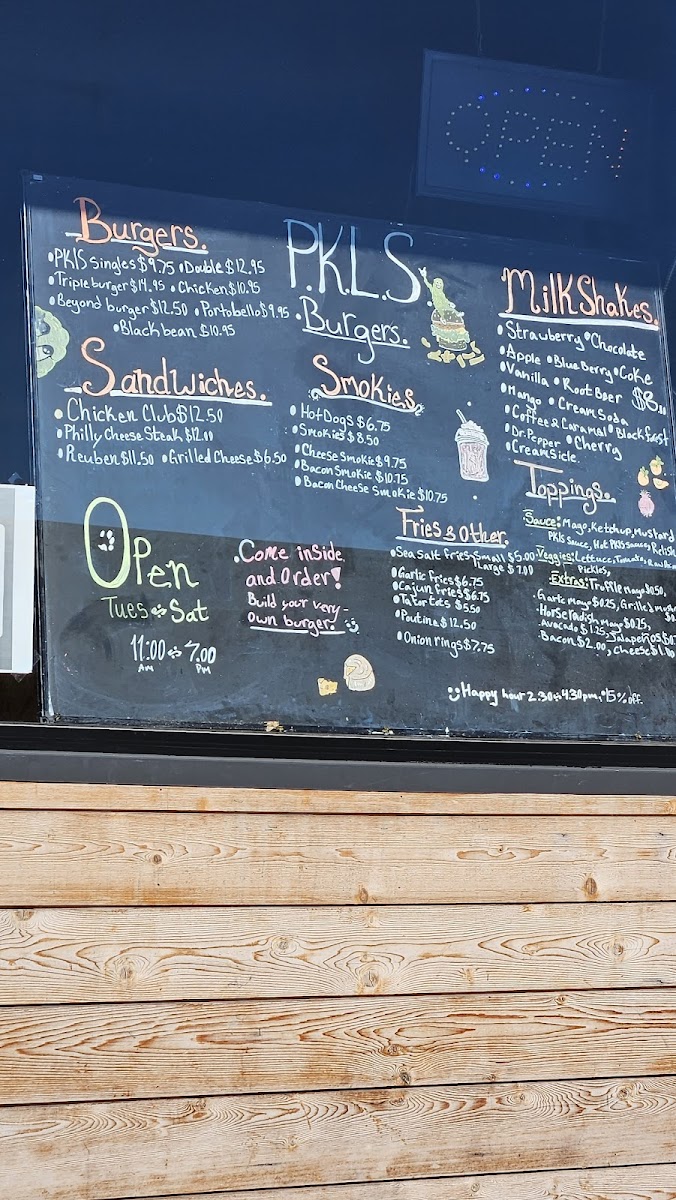 OPEN
Burgers.
•PKlS singles $9.75 •Double $12.95
•Triple burger $14.95 •Chicken $10.95
•Beyond burger $12.50 •Portobello $9.95
•Black bean $10.95
P.K.L.S
•Burgers.
Milk Shakes.
•Strawberry •Chocolate
•Apple •BlueBerry •Coke
•Vanilla •Root Beer $8.
•Mango •Cream Soda
•Coffee & Caramel •Black forest
•Dr. Pepper •Cherry
•Creamsicle
Sandwiches.
•Chicken Club $12.50
•Philly Cheese Steak $12.
•Reuben $11.50 •Grilled Cheese $6.50
Smokies
•Hot Dogs $6.75
•Smokies $8.50
•Cheese Smokie $9.75
•Bacon Smokie $10.75
•Bacon Cheese Smokie $10.75
Toppings.
Sauce: Mayo, Ketchup, Mustard
PKlS Sauce, Hot PKlS sauce, Relish
Veggies: Lettuce, Tomato,
Pickles,
Extras: Truffle mayo $0.50,
Garlic mayo $0.25, Grilled
Horseradish mayo $0.25,
Avocado $1.25, Jalapeños
Bacon $2.00, cheese
Fries & Other.
•Sea Salt fries-Small $5.00
Large $7.00
•Garlic fries $6.75
•Cajun fries $6.75
•Tater tots $5.50
•Poutine $12.50
•Onion rings $7.75
Open
Tues ↔ Sat
11:00 ↔ 7.00
AM PM
•Come inside
and Order!
Build your very-
own burger!
Happy hour 2.30↔4.30pm, •15% off.